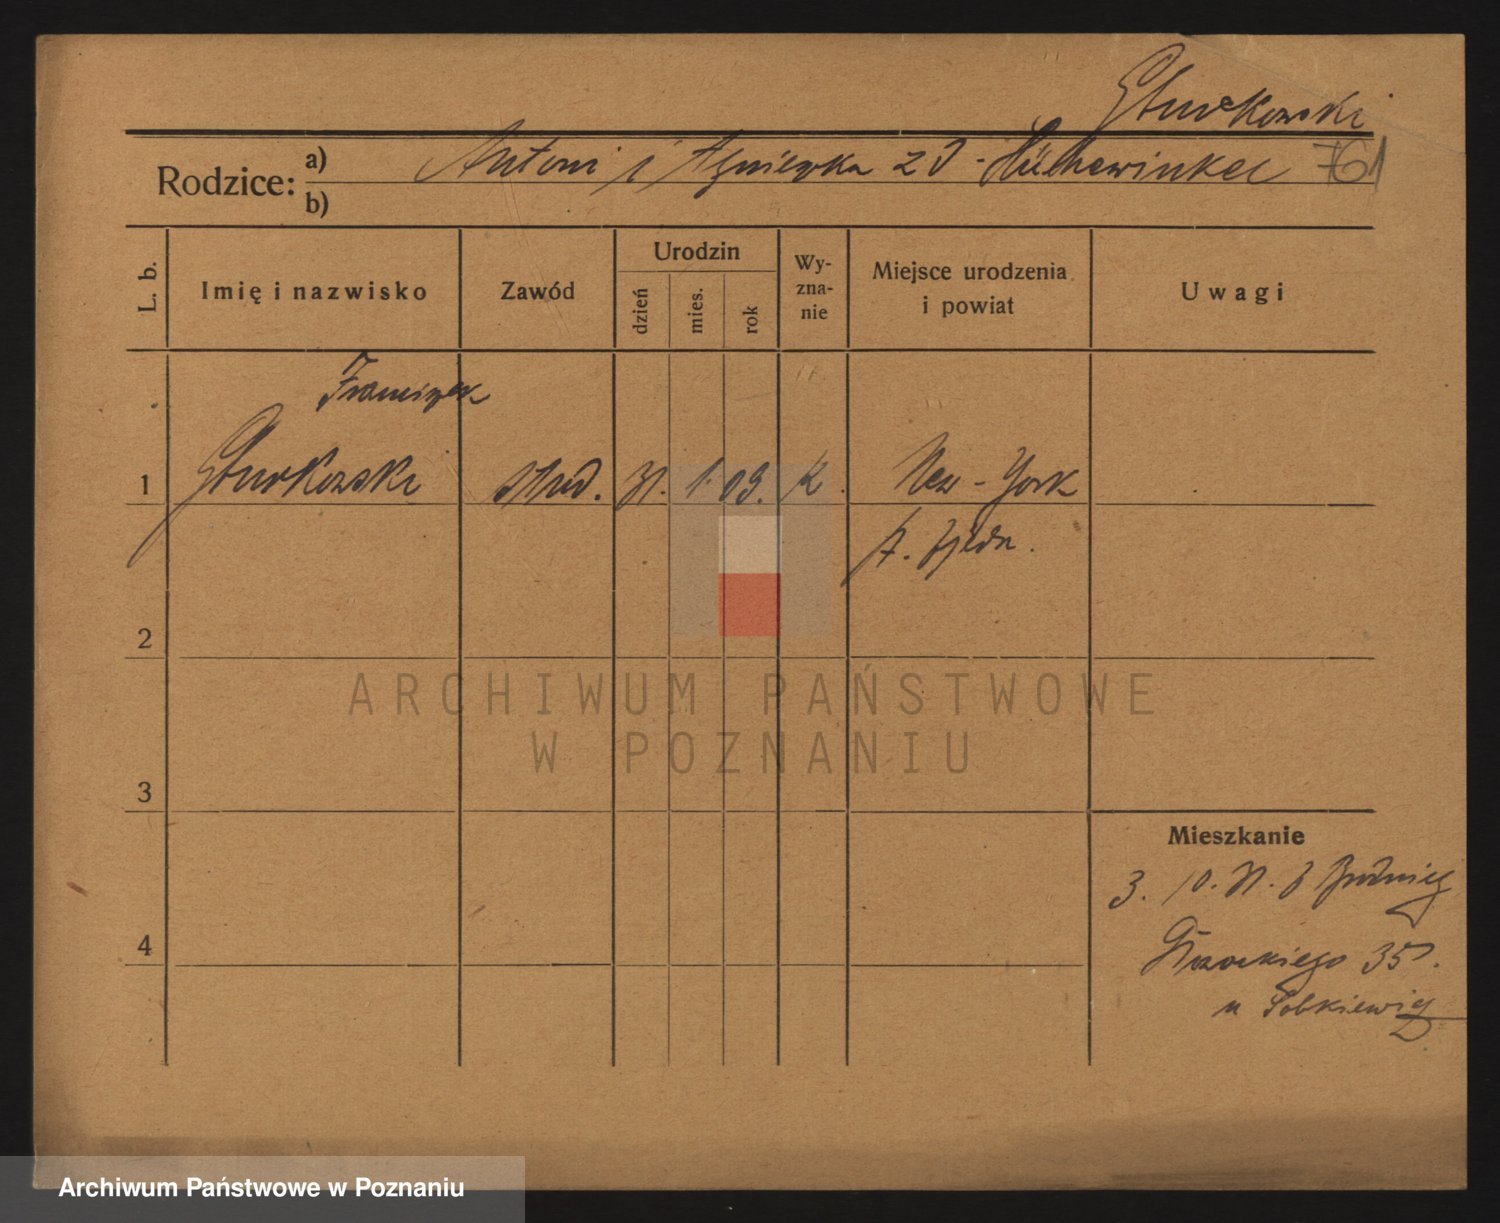 Rodzice:
a) Antoni i Agnieszka z d.
761
b)
L. b.
Imię i nazwisko
Zawód
Urodzin
dzień
mies.
rok
Wy-
zna-
nie
Miejsce urodzenia
i powiat
Uwagi
Franciszek
1
stud. 31. 1. 09. k. New-York
St. Zjedn.
2
ARCHIWUM PAŃSTWOWE
W POZNANIU
3
Mieszkanie
3. 10. 31. z
4
35.
u
Archiwum Państwowe w Poznaniu